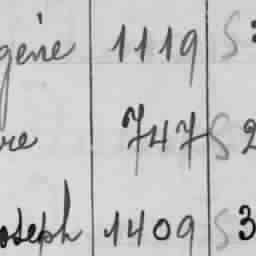 gène 1119 S
re 747 S 2
oseph 1409 S 3